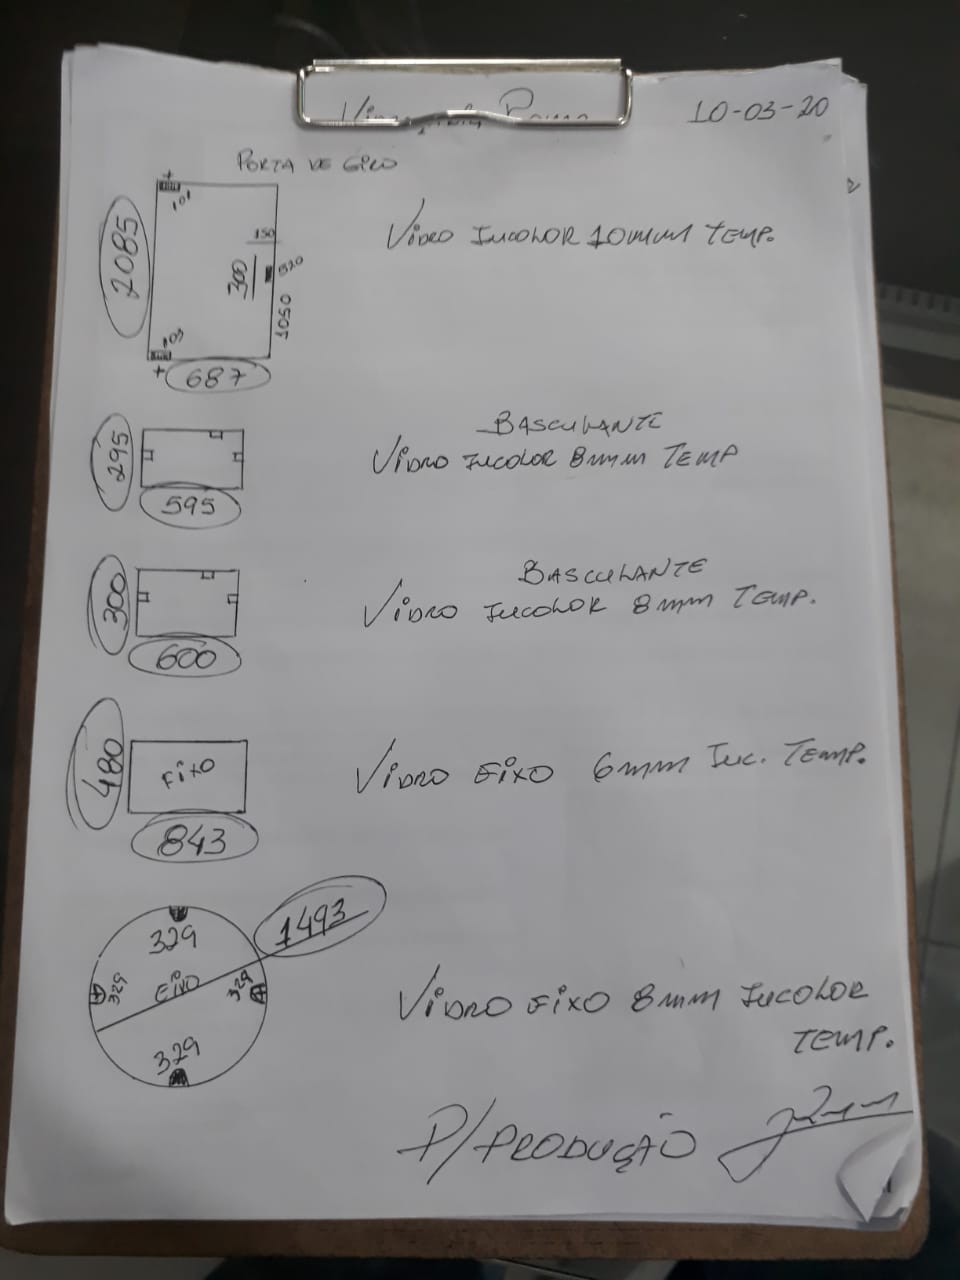 10-03-20
PORTA DE GIRO
101
2085
150
300
520
1050
103
687
VIDRO INCOLOR 10mm TEMP.
295
595
BASCULANTE
VIDRO INCOLOR 8mm TEMP
300
600
BASCULANTE
VIDRO INCOLOR 8mm TEMP.
480
FIXO
843
VIDRO FIXO 6mm INC. TEMP.
1493
329
329
FIXO
329
329
VIDRO FIXO 8mm INCOLOR
TEMP.
P/PRODUÇÃO